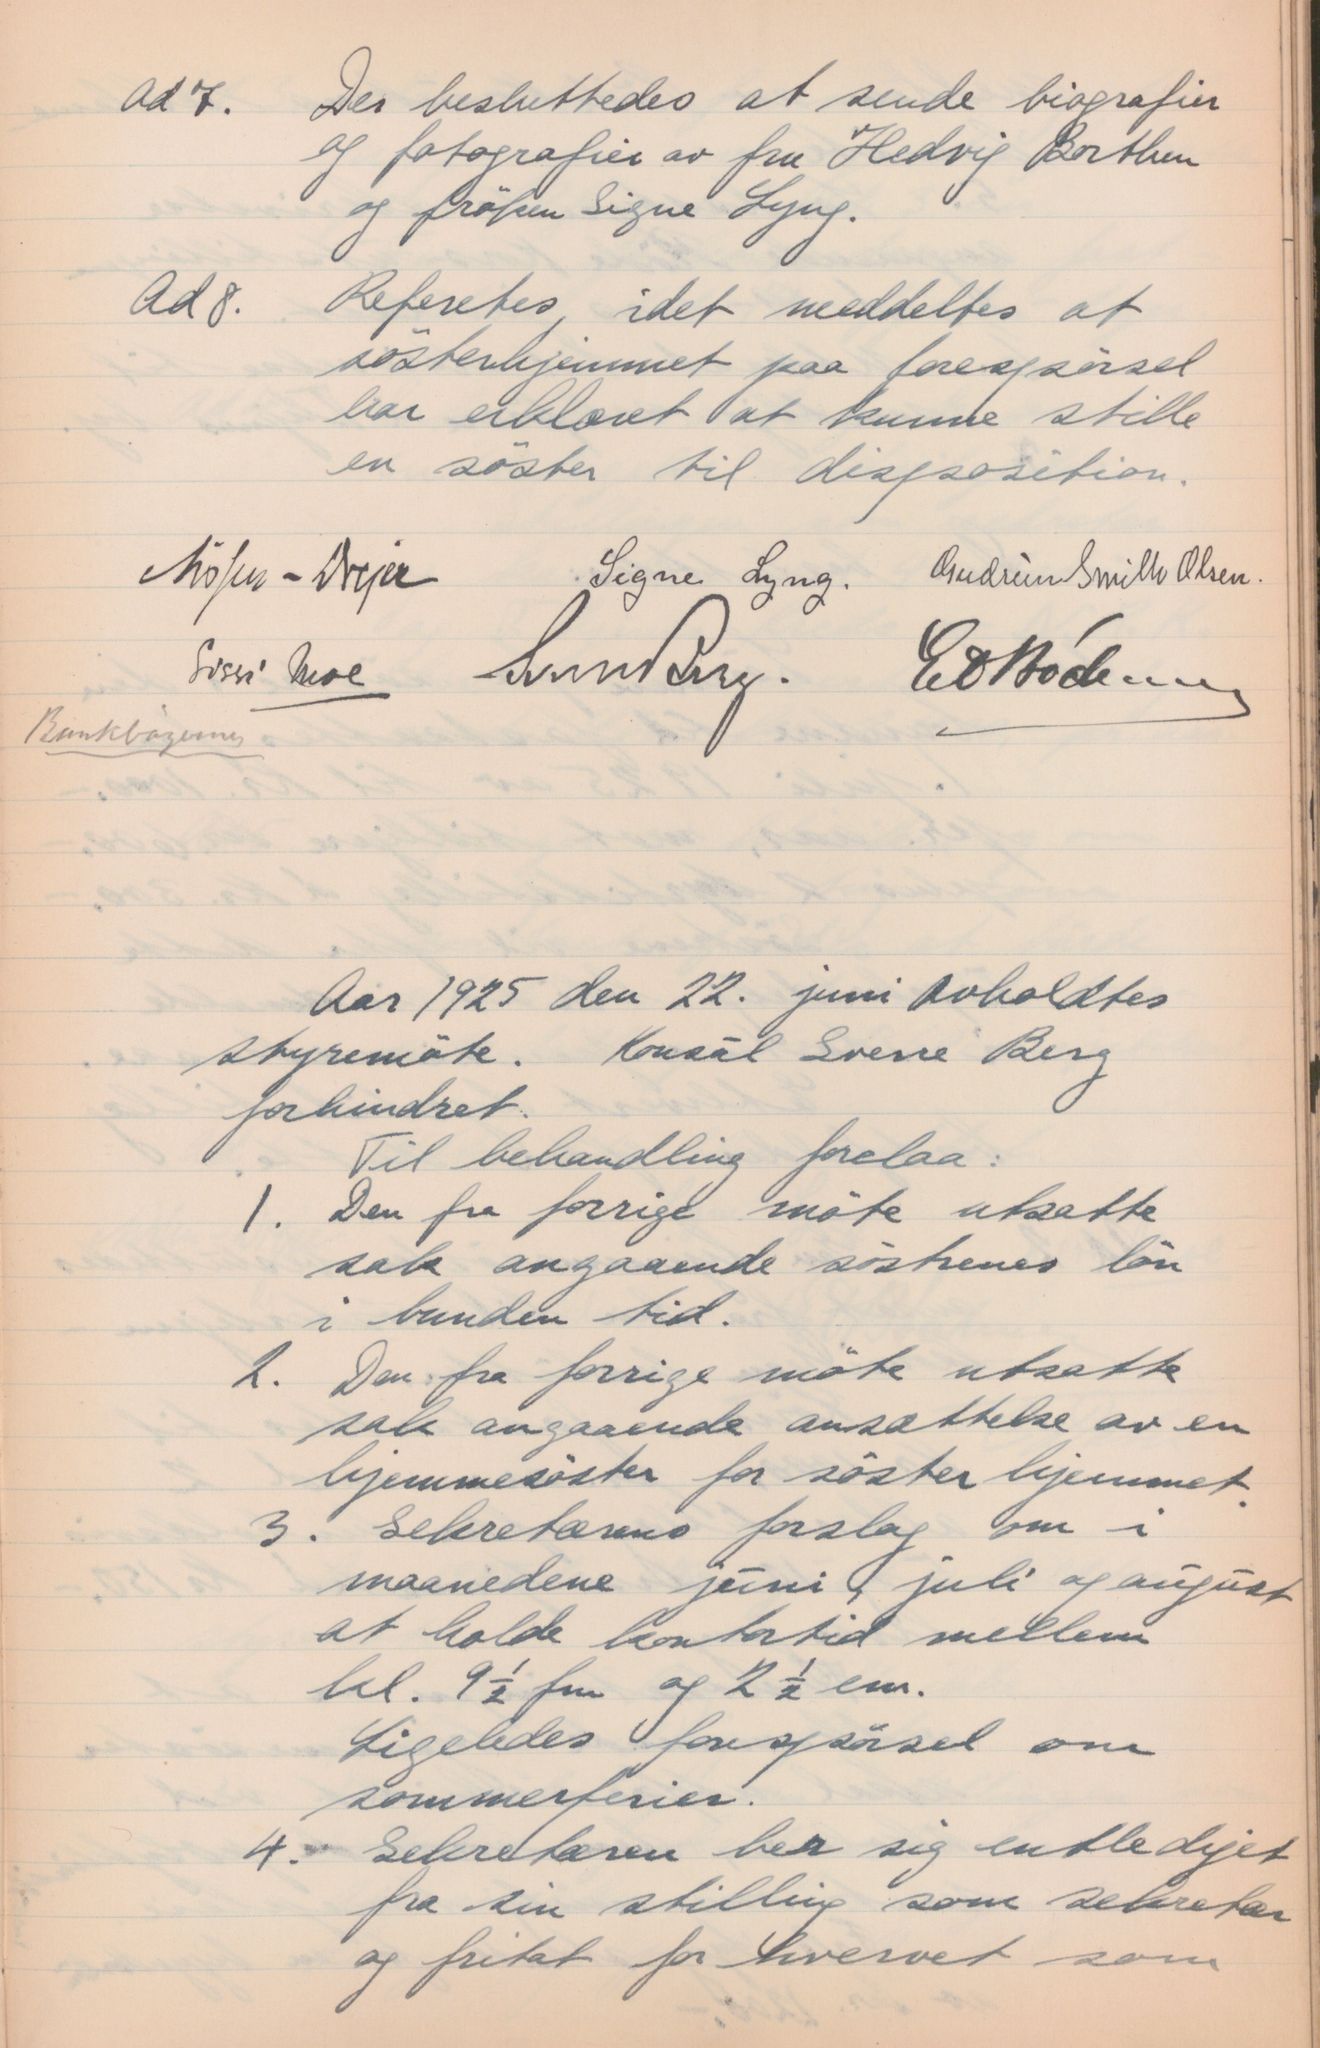 Ad 7. Der besluttedes at sende biografier
og fotografier av fru Hedvig Borthen
og fröken Signe Lyng.
Ad 8. Referetes, idet meddeltes at
sösterhjemmet paa forespörsel
har erklæret at kunne stille
en söster til disposition.
Signe Lyng. Gudrun Smith Olsen.
Sissi Moe
Aar 1925 den 22. juni avholdtes
styremöte. Konsul Sverre Berg
forhindret.
Til behandling forelaa:
1. Den fra forrige möte utsatte
sak angaaende söstrenes lön
i bunden tid.
2. Den fra forrige möte utsatte
sak angaaende ansættelse av en
hjemmesöster for söster hjemmet.
3. Sekretærens forslag om i
maanedene juni, juli og august
at holde kontortid mellem
kl. 9 1/2 fm og 2 1/2 em.
Ligeledes forespörsel om
sommerferier.
4. Sekretæren ber sig entlediget
fra sin stilling som sekretær
og fritat for hvervet som